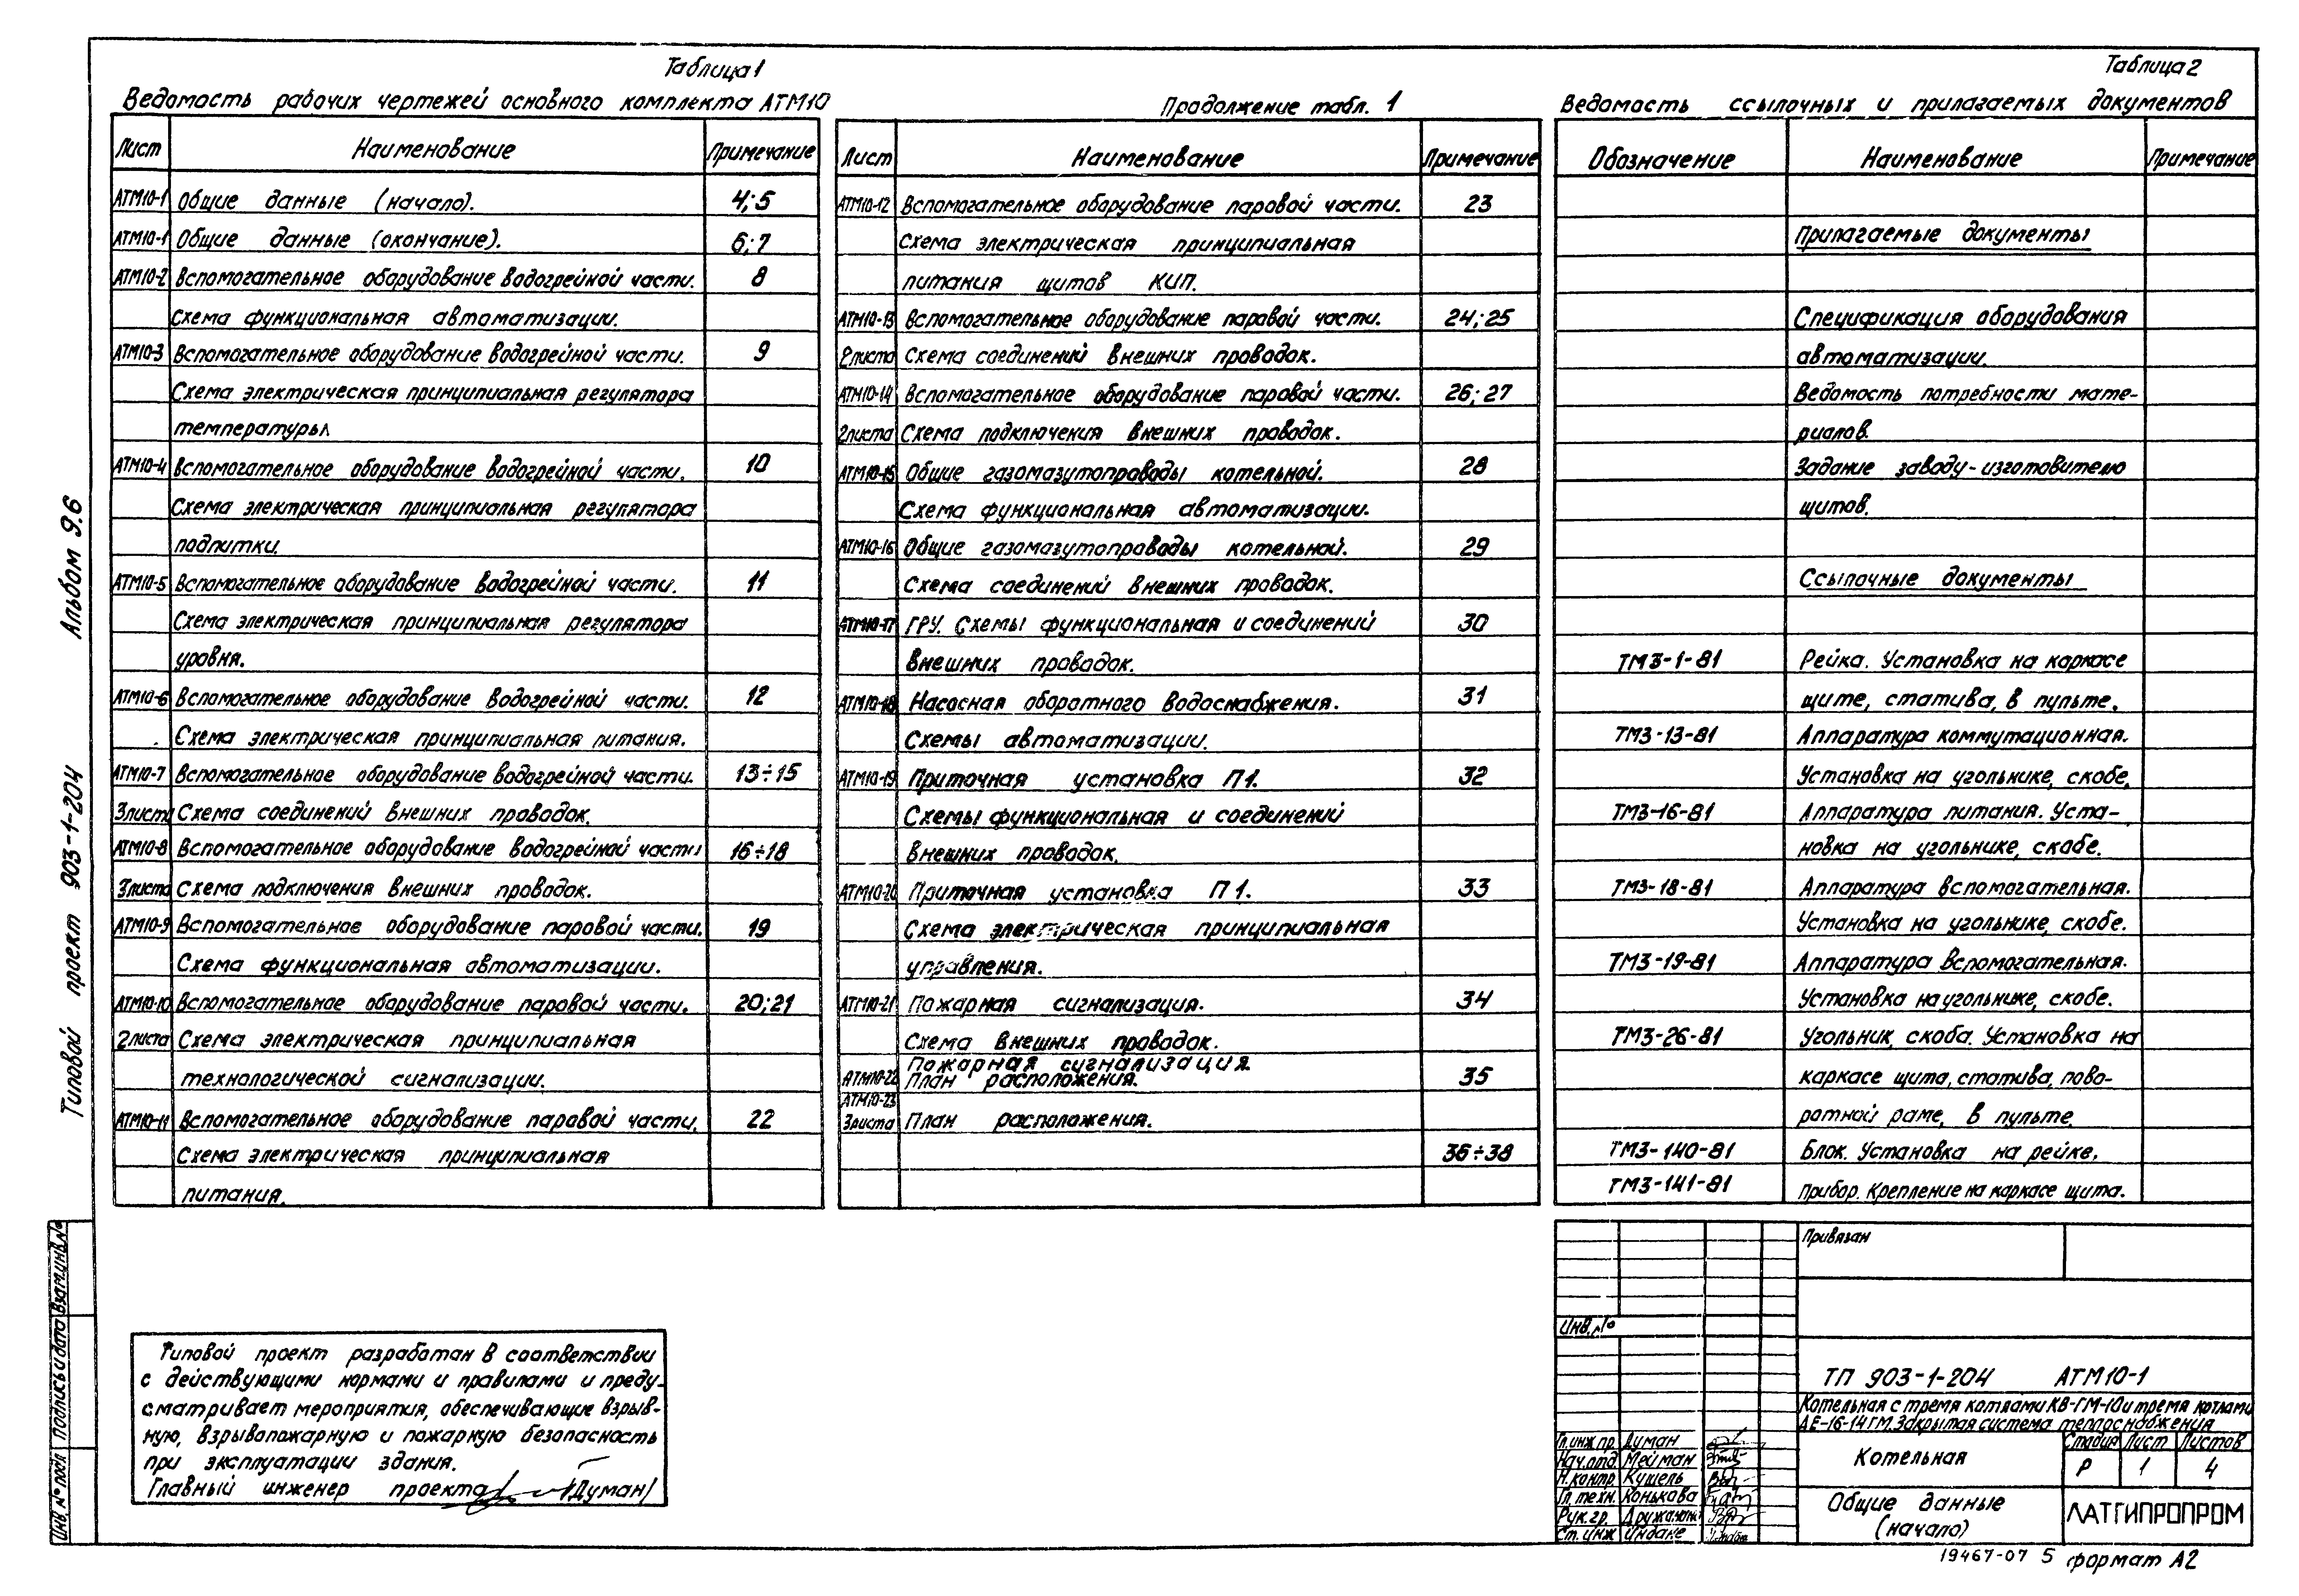 Таблица 1
Ведомость рабочих чертежей основного комплекта АТМ10
Лист Наименование Примечание
АТМ10-1 Общие данные (начало). 4;5
АТМ10-1 Общие данные (окончание). 6;7
АТМ10-2 Вспомогательное оборудование водогрейной части. 8
Схема функциональная автоматизации.
АТМ10-3 Вспомогательное оборудование водогрейной части. 9
Схема электрическая принципиальная регулятора
температуры
АТМ10-4 Вспомогательное оборудование водогрейной части. 10
Схема электрическая принципиальная регулятора
подпитки.
АТМ10-5 Вспомогательное оборудование водогрейной части. 11
Схема электрическая принципиальная регулятора
уровня.
АТМ10-6 Вспомогательное оборудование водогрейной части. 12
Схема электрическая принципиальная питания.
АТМ10-7 Вспомогательное оборудование водогрейной части. 13÷15
3листа Схема соединений внешних проводок.
АТМ10-8 Вспомогательное оборудование водогрейной части 16÷18
3листа Схема подключения внешних проводок.
АТМ10-9 Вспомогательное оборудование паровой части. 19
Схема функциональная автоматизации.
АТМ10-10 Вспомогательное оборудование паровой части. 20;21
2листа Схема электрическая принципиальная
технологической сигнализации.
АТМ10-11 Вспомогательное оборудование паровой части. 22
Схема электрическая принципиальная
питания.
Продолжение табл. 1
Лист Наименование Примечание
АТМ10-12 Вспомогательное оборудование паровой части. 23
Схема электрическая принципиальная
питания щитов КИП.
АТМ10-13 Вспомогательное оборудование паровой части. 24;25
2листа Схема соединений внешних проводок.
АТМ10-14 Вспомогательное оборудование паровой части. 26;27
2листа Схема подключения внешних проводок.
АТМ10-15 Общие газомазутопроводы котельной. 28
Схема функциональная автоматизации.
АТМ10-16 Общие газомазутопроводы котельной. 29
Схема соединений внешних проводок.
АТМ10-17 ГРУ. Схемы функциональная и соединений 30
внешних проводок.
АТМ10-18 Насосная оборотного водоснабжения. 31
Схемы автоматизации.
АТМ10-19 Приточная установка П1. 32
Схемы функциональная и соединений
внешних проводок.
АТМ10-20 Приточная установка П1. 33
Схема электрическая принципиальная
управления.
АТМ10-21 Пожарная сигнализация. 34
Схема внешних проводок.
Пожарная сигнализация.
АТМ10-22 План расположения. 35
АТМ10-23
3листа План расположения.
36÷38
Таблица 2
Ведомость ссылочных и прилагаемых документов
Обозначение Наименование Примечание
Прилагаемые документы
Спецификация оборудования
автоматизации.
Ведомость потребности мате-
риалов.
Задание заводу-изготовителю
щитов.
Ссылочные документы
ТМ3-1-81 Рейка. Установка на каркасе
щите, статива, в пульте.
ТМ3-13-81 Аппаратура коммутационная.
Установка на угольнике, скобе.
ТМ3-16-81 Аппаратура питания. Уста-
новка на угольнике, скобе.
ТМ3-18-81 Аппаратура вспомогательная.
Установка на угольнике, скобе.
ТМ3-19-81 Аппаратура вспомогательная.
Установка на угольнике, скобе.
ТМ3-26-81 Угольник, скоба. Установка на
каркасе щита, статива, пово-
ротной раме, в пульте.
ТМ3-140-81 Блок. Установка на рейке.
ТМ3-141-81 Прибор. Крепление на каркасе щита.
Альбом 9.6
Типовой проект 903-1-204
Взам.инв.№
Подпись и дата
Инв.№ подл
Типовой проект разработан в соответствии
с действующими нормами и правилами и преду-
сматривает мероприятия, обеспечивающие взрыв-
ную, взрывопожарную и пожарную безопасность
при эксплуатации здания.
Главный инженер проекта /Думан/
Привязан
Инв.№
ТП 903-1-204 АТМ10-1
Котельная с тремя котлами КВ-ГМ-10 и тремя котлами
ДЕ-16-14ГМ. Закрытая система теплоснабжения
Гл.инж.пр. Думан
Нач.отд Мейман
Н.контр. Кушель
Гл.техн. Конькова
Рук.гр.
Ст.инж Индане
Котельная
Стадия Лист Листов
Р 1 4
Общие данные
(начало)
ЛАТГИПРОПРОМ
19467-07 5 формат А2